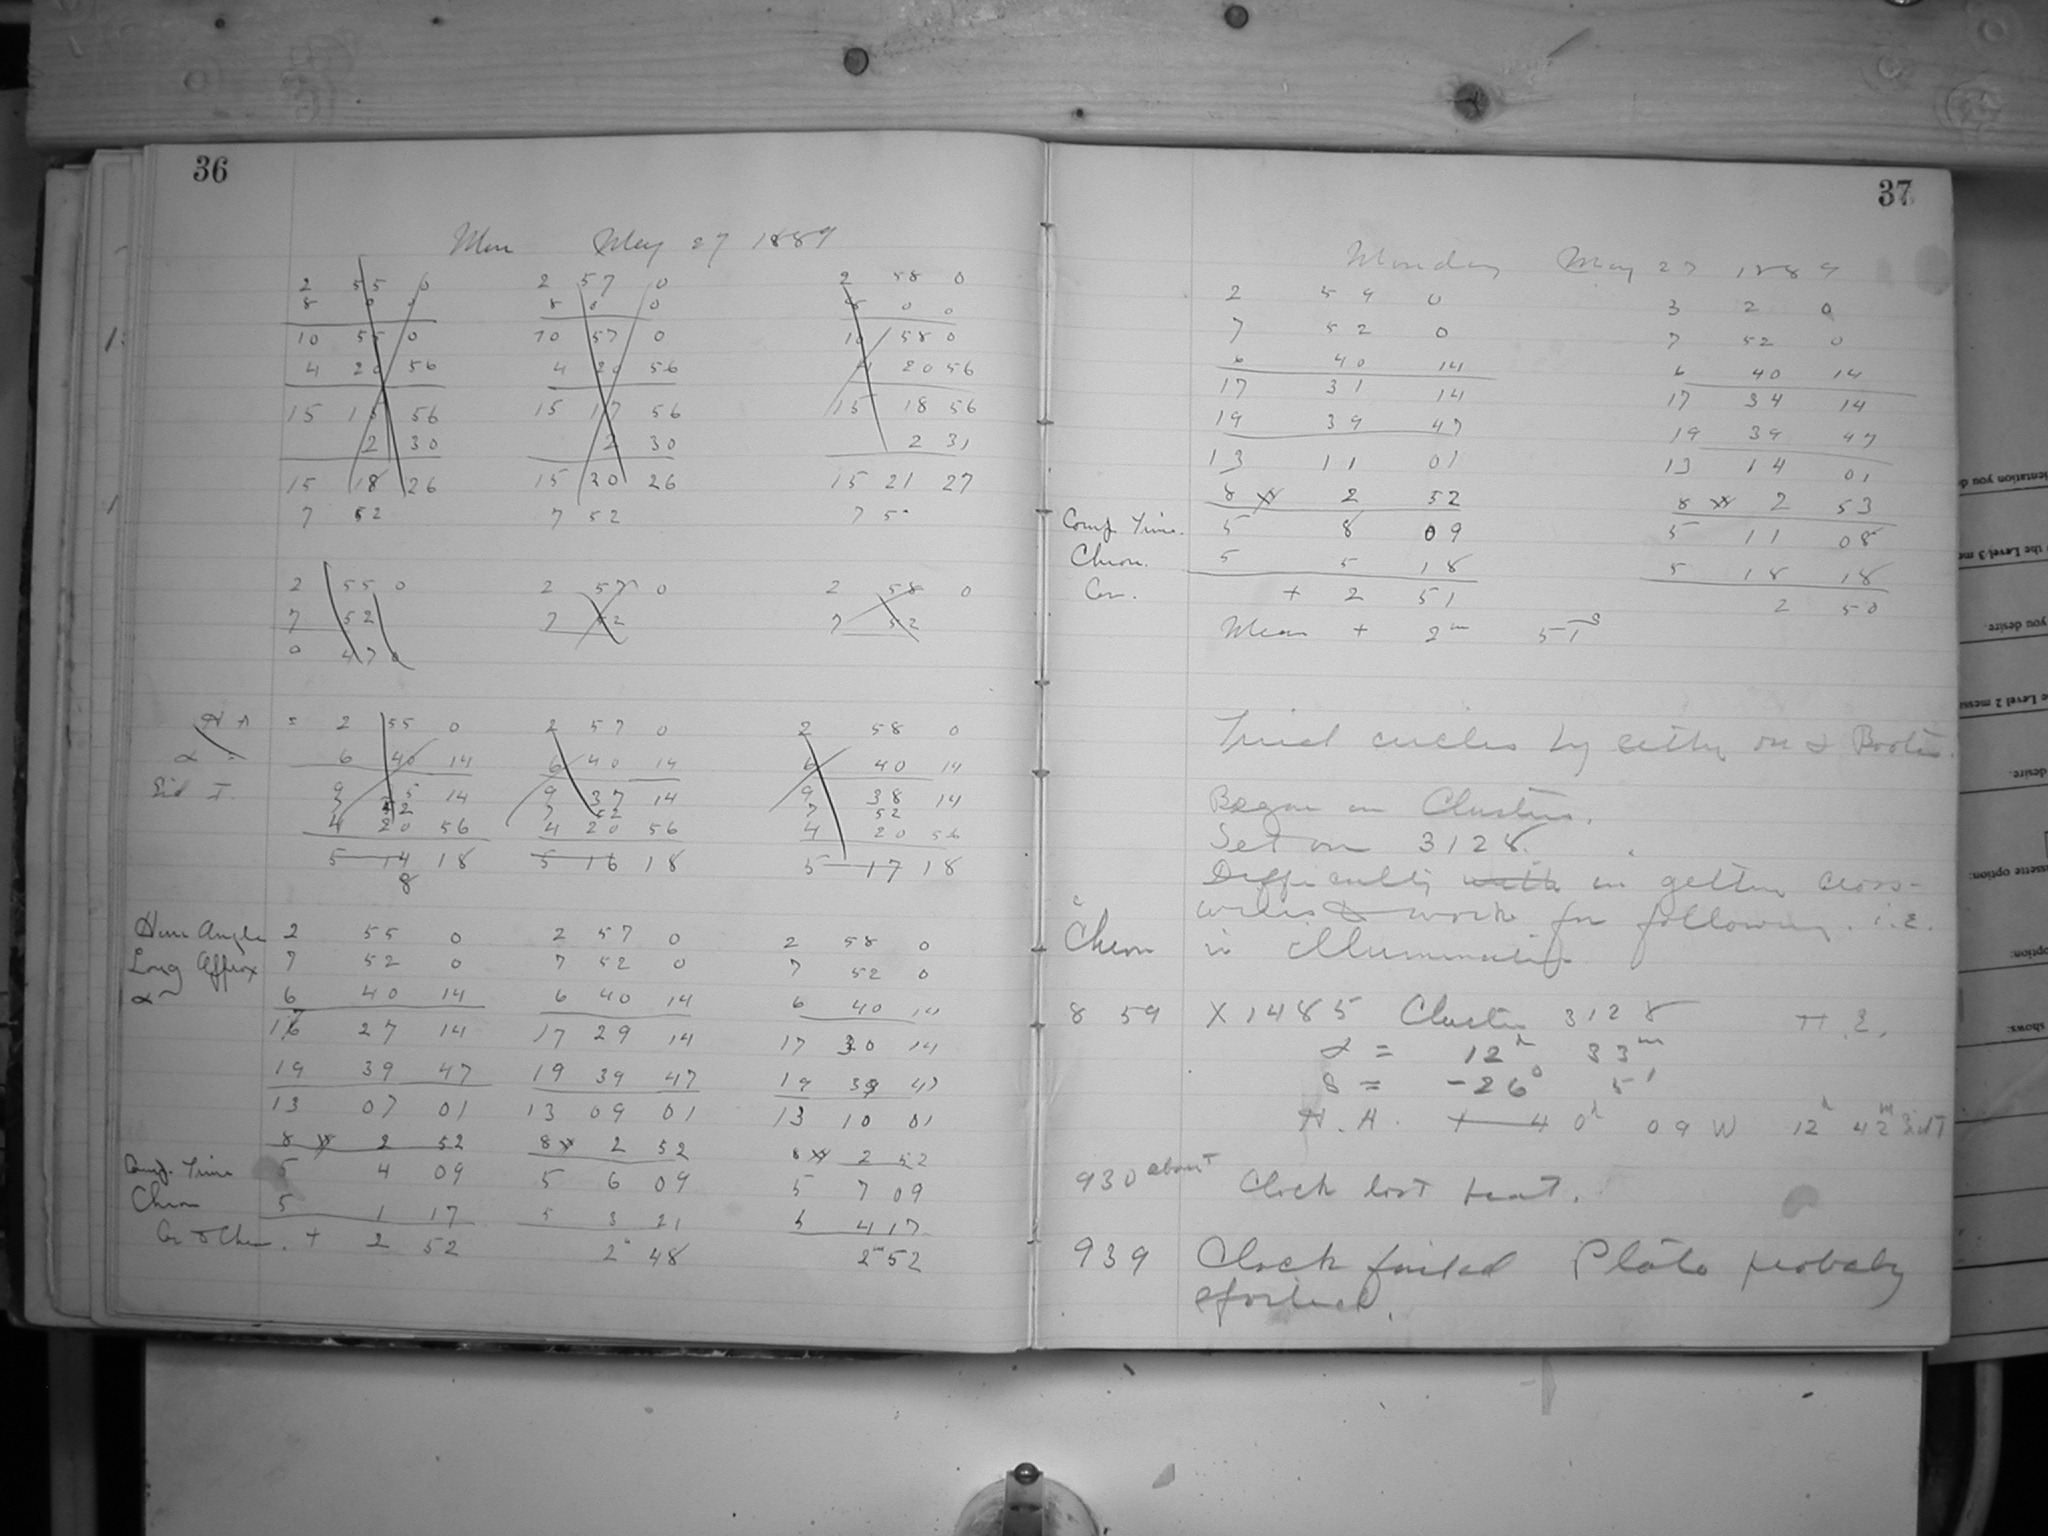 36
Mon May 27 1889
2 55 0 2 57 0 2 58 0
8 0 0 8 0 0 8 0 0
10 55 0 10 57 0 10 58 0
4 20 56 4 20 56 4 20 56
15 15 56 15 17 56 15 18 56
2 30 2 30 2 31
15 18 26 15 20 26 15 21 27
7 52 7 52 7 5
2 55 0 2 57 0 2 58 0
7 52 7 52 7 52
0 47 0
H A = 2 55 0 2 57 0 2 58 0
α = 6 40 14 6 40 14 6 40 14
Sid T. 9 35 14 9 37 14 9 38 14
7 52 7 52 7 52
4 20 56 4 20 56 4 20 56
5 14 18 5 16 18 5 17 18
8
Hour Angle 2 55 0 2 57 0 2 58 0
Long Approx 7 52 0 7 52 0 7 52 0
α 6 40 14 6 40 14 6 40 14
17 27 14 17 29 14 17 30 14
19 39 47 19 39 47 19 39 47
13 07 01 13 09 01 13 10 01
8 2 52 8 2 52 8 2 52
Comp. Time 5 4 09 5 6 09 5 7 09
Chron 5 1 17 5 3 21 5 4 17
Cor to Chron. + 2 52 2 48 2 52
37
Monday May 27 1889
2 59 0 3 2 0
7 52 0 7 52 0
6 40 14 6 40 14
17 31 14 17 34 14
19 39 47 19 39 47
13 11 01 13 14 01
8 2 52 8 2 53
Comp. Time. 5 8 09 5 11 08
Chron. 5 5 18 5 18 18
Cor. + 2 51 2 50
Mean + 2m 51s
Tried circles by setting on α Bootis.
Began on Clusters.
Set on 3128.
Difficulty with in getting cross-
wires to work for following. i.e.
Chron in illuminating
8 59 X 1485 Cluster 3128 H. E.
α = 12h 33m
δ = -26° 5'
H. A. + 4 0h 09 W 12h 42m Sid T
9 30 about Clock lost beat.
9 39 Clock failed Plate probably
spoiled.